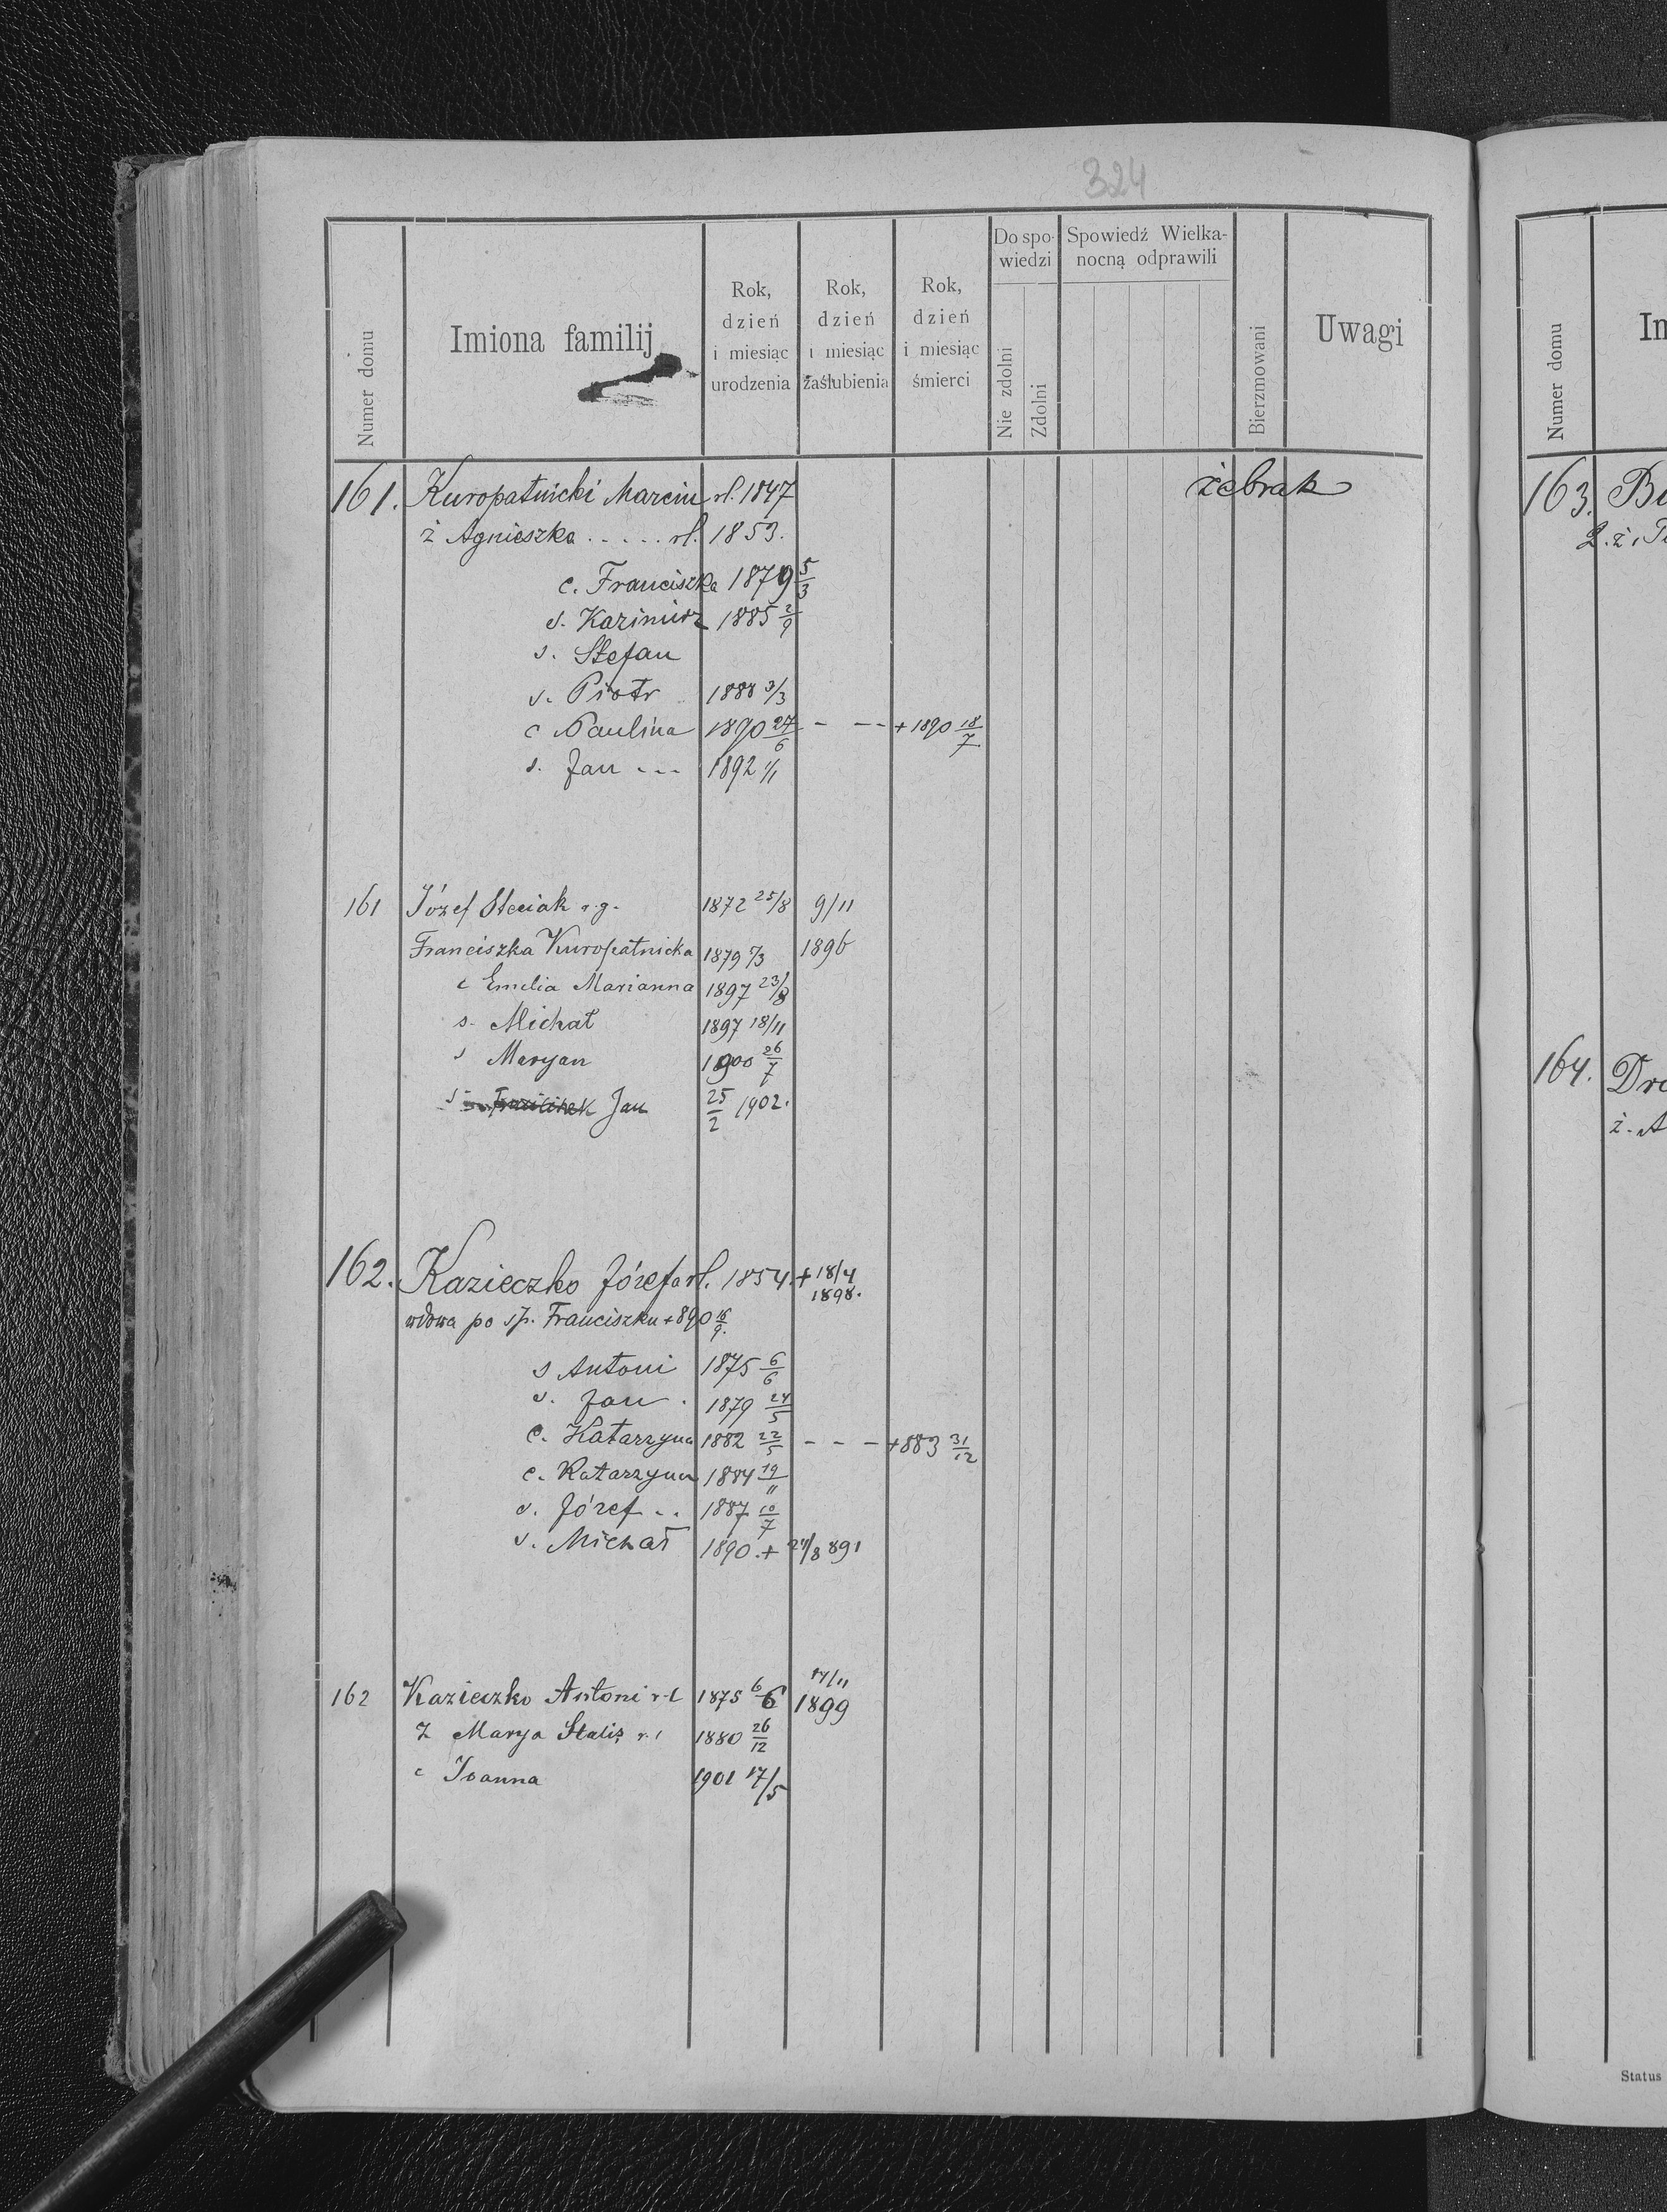 324
Numer domu
Imiona familij
Rok, dzień i miesiąc urodzenia
Rok, dzień i miesiąc zaślubienia
Rok, dzień i miesiąc śmierci
Do spowiedzi
Nie zdolni
Zdolni
Spowiedź Wielkanocną odprawili
Bierzmowani
Uwagi
161. Kuropatnicki Marcin rl. 1847 żebrak
ż Agnieszka ..... rl. 1853.
c. Franciszka 1879 5/3
s. Kazimirz 1885 2/9
s. Stefan
s. Piotr 1888 3/3
c Paulina 1890 27/6 - -- + 1890 18/7
s. Jan --- 1892 1/1
161 Józef Steciak r.g. 1872 25/8 9/11
Franciszka Kuropatnicka 1879 5/3 1896
c Emelia Marianna 1897 23/8
s. Michał 1897 18/11
s Maryan 1900 26/7
s Jan 25/2 1902.
162. Kazieczko Józefa rl. 1854. + 18/4 1898.
wdowa po sp. Franciszku + 890 16/9.
s Antoni 1875 6/6
s. Jan . 1879 24/5
c. Katarzyna 1882 22/5 - - - + 883 31/12
c. Katarzyna 1884 19/11
s. Józef .. 1887 10/7
s. Michał 1890. + 27/8 891
162 Kazieczko Antoni r-l 1875 6/6 17/11 1899
Ż Marya Stalis r.l 1880 26/12
c Joanna 1901 17/5
Numer domu
Im
163. Bu
2. ż.
164. Dro
ż. A
Status